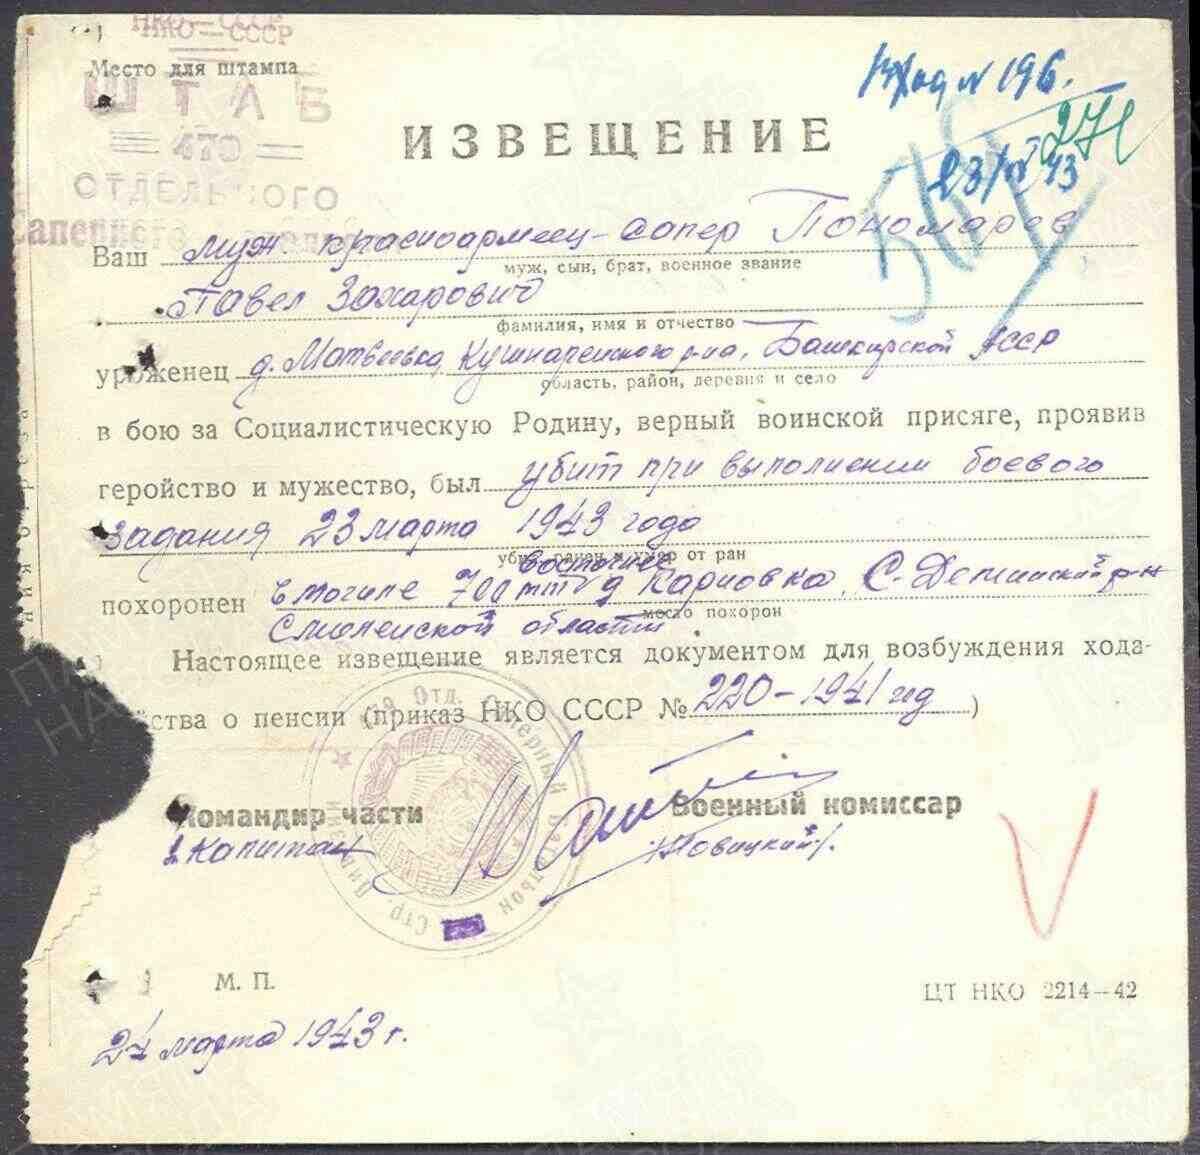 НКО — СССР
Место для штампа
ШТАБ
470
ОТДЕЛЬНОГО
Саперного
ИЗВЕЩЕНИЕ
Вход N 196.
271
Ваш муж. красноармеец-сапер Пономарев
муж, сын, брат, военное звание
Павел Захарович
фамилия, имя и отчество
уроженец д. Кушнаренского р-на, Башкирской АССР
область, район, деревня и село
в бою за Социалистическую Родину, верный воинской присяге, проявив
геройство и мужество, был убит при выполнении боевого
задания 23 марта 1943 года
убит, ранен и умер от ран
восточнее
похоронен в могиле 700 мтр д Карповка, С-
место похорон
Смоленской области
Настоящее извещение является документом для возбуждения хода-
ства о пенсии (приказ НКО СССР № 220-1941 год)
Командир части Военный комиссар
Капитан /Новицкий/.
Отд. Саперный Батальон Стр. Дивизии
М. П.
ЦТ НКО 2214—42
24 марта 1943 г.